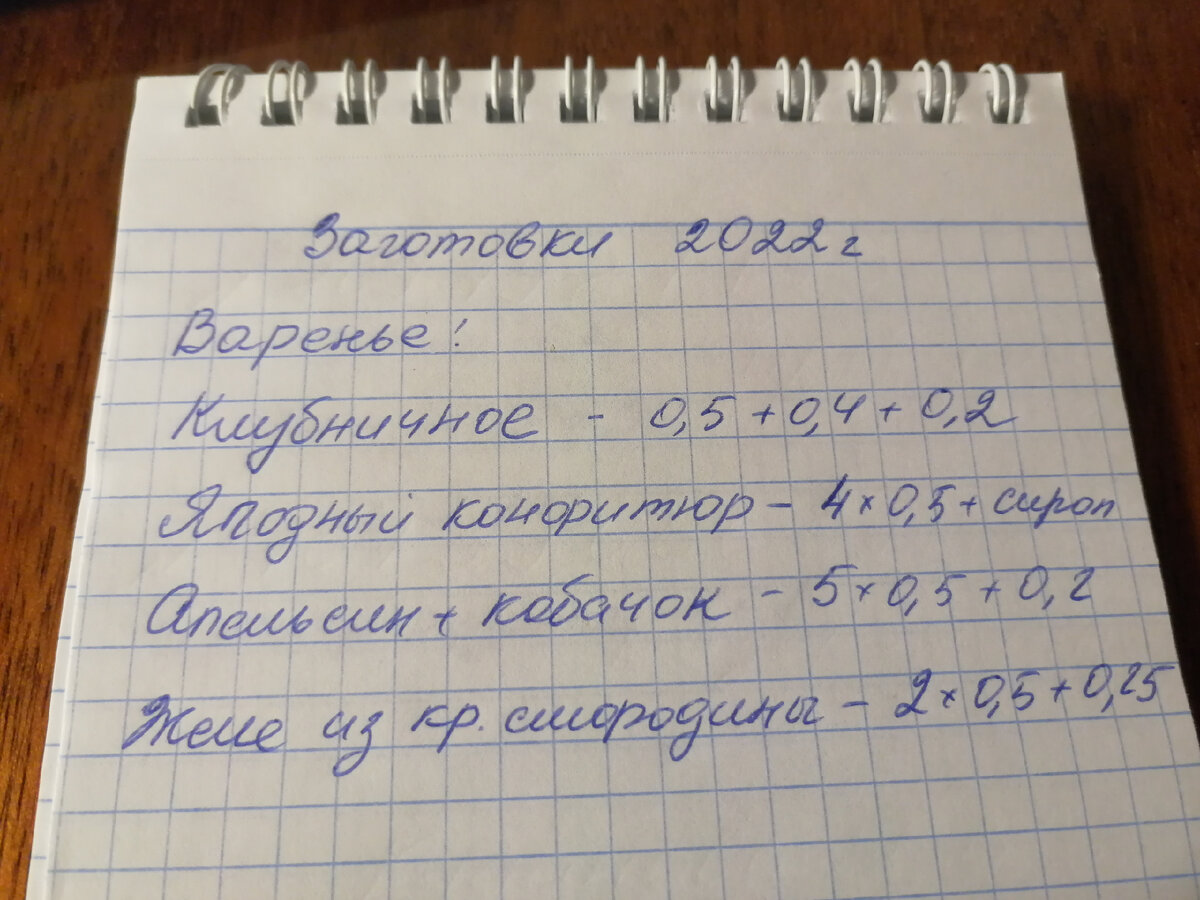 Заготовки 2022г
Варенье:
Клубничное - 0,5 + 0,4 + 0,2
Ягодный конфитюр - 4 × 0,5 + сироп
Апельсин + кабачок - 5 × 0,5 + 0,2
Желе из кр. смородины - 2 × 0,5 + 0,25